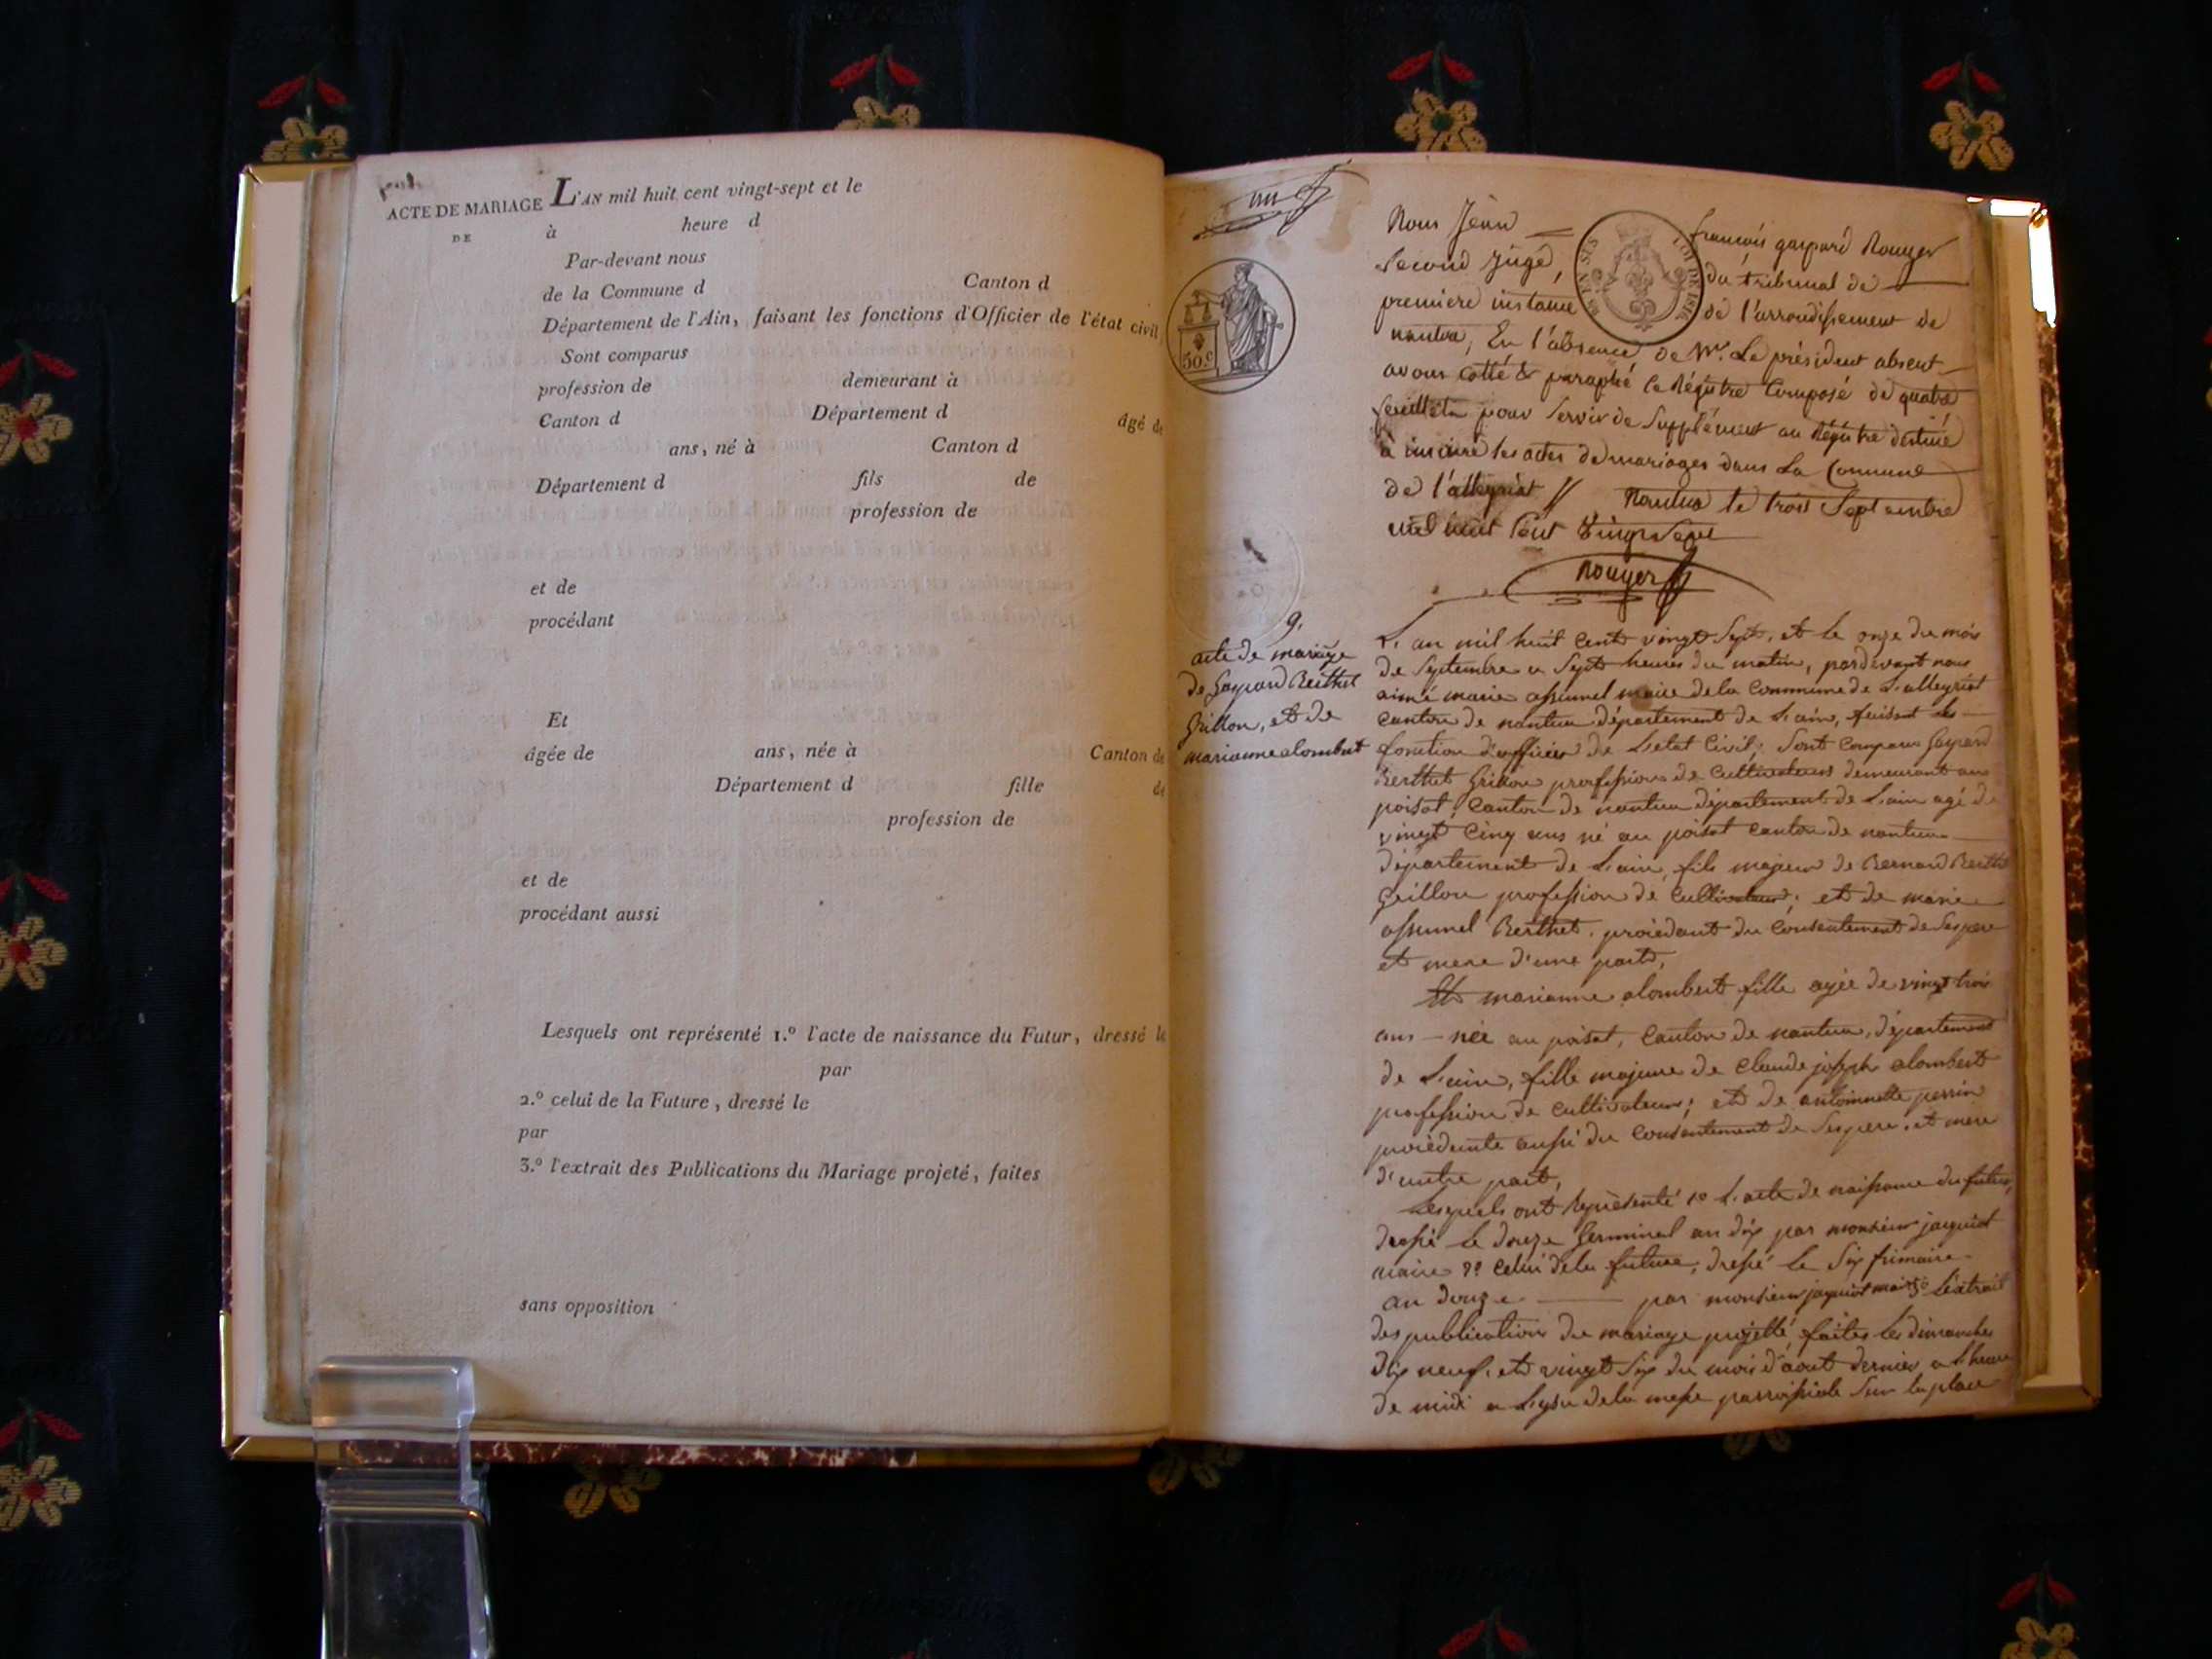 ACTE DE MARIAGE L'AN mil huit cent vingt-sept et le
DE à heure d
Par-devant nous
de la Commune d Canton d
Département de l'Ain, faisant les fonctions d'Officier de l'état civil
Sont comparus
profession de demeurant à
Canton d Département d âgé de
ans, né à Canton d
Département d fils de
profession de
et de
procédant
Et
âgée de ans, née à Canton de
Département d fille de
profession de
et de
procédant aussi
Lesquels ont représenté 1.º l'acte de naissance du Futur, dressé le
par
2.º celui de la Future, dressé le
par
3.º l'extrait des Publications du Mariage projeté, faites
sans opposition
50.c
Nous Jean françois gaspard Rouyer
Second Juge, du tribunal de
premiere instance de l'arrondissement de
nantua, En l'absence de Mr. Le président absent
avons cotté & paraphé Ce Régistre Composé de quatre
feuillets pour Servir de Supplément au Régistre destiné
à inscrire les actes de mariages dans La Commune
de l'alleyriat // Nantua le trois Septembre
mil huit Cent Vingt Sept
Rouyer
9.
acte de mariage
de Gaspard Berthet
Grillon, et de
marianne alombert
L'an mil huit cent vingt Sept, et le onze du mois
de Septembre a Sept heures du matin, pardevant nous
aimé marie assumel maire de la Commune de L'alleyriat
canton de nantua département de L'ain, faisant les
fonction d'officier de L'etat Civil; Sont Comparus Gaspard
Berthet Grillon profession de Cultivateur demeurant au
poisat, Canton de nantua département de L'ain agé de
vingt Cinq ans né au poisat canton de nantua
département de L'ain, fils majeur de Bernard Berthet
Grillon profession de Cultivateur; et de marie
assumel Berthet, procédant du Consentement de Ses pere
et mere d'une part,
Et marianne alombert fille agée de vingt trois
ans née au poisat, Canton de nantua, département
de L'ain, fille majeure de Claude joseph alombert
profession de cultivateur; et de antoinnette perrin
procédente aussi du Consentement de Ses pere et mere
d'autre part,
Lesquels ont Représenté 1º L'acte de naissance du futur,
dressé le douze Germinal an dix par monsieur jaquiot
maire 2º Celui de la future, dressé le Six frimaire
an douze par monsieur jaquiot maire 3º L'extrait
des publication du mariage projetté, faites les dimanches
dix neuf, et vingt Six du mois d'aout dernier a L'heure
de midi a L'ysue de la messe parroissiale Sur la place